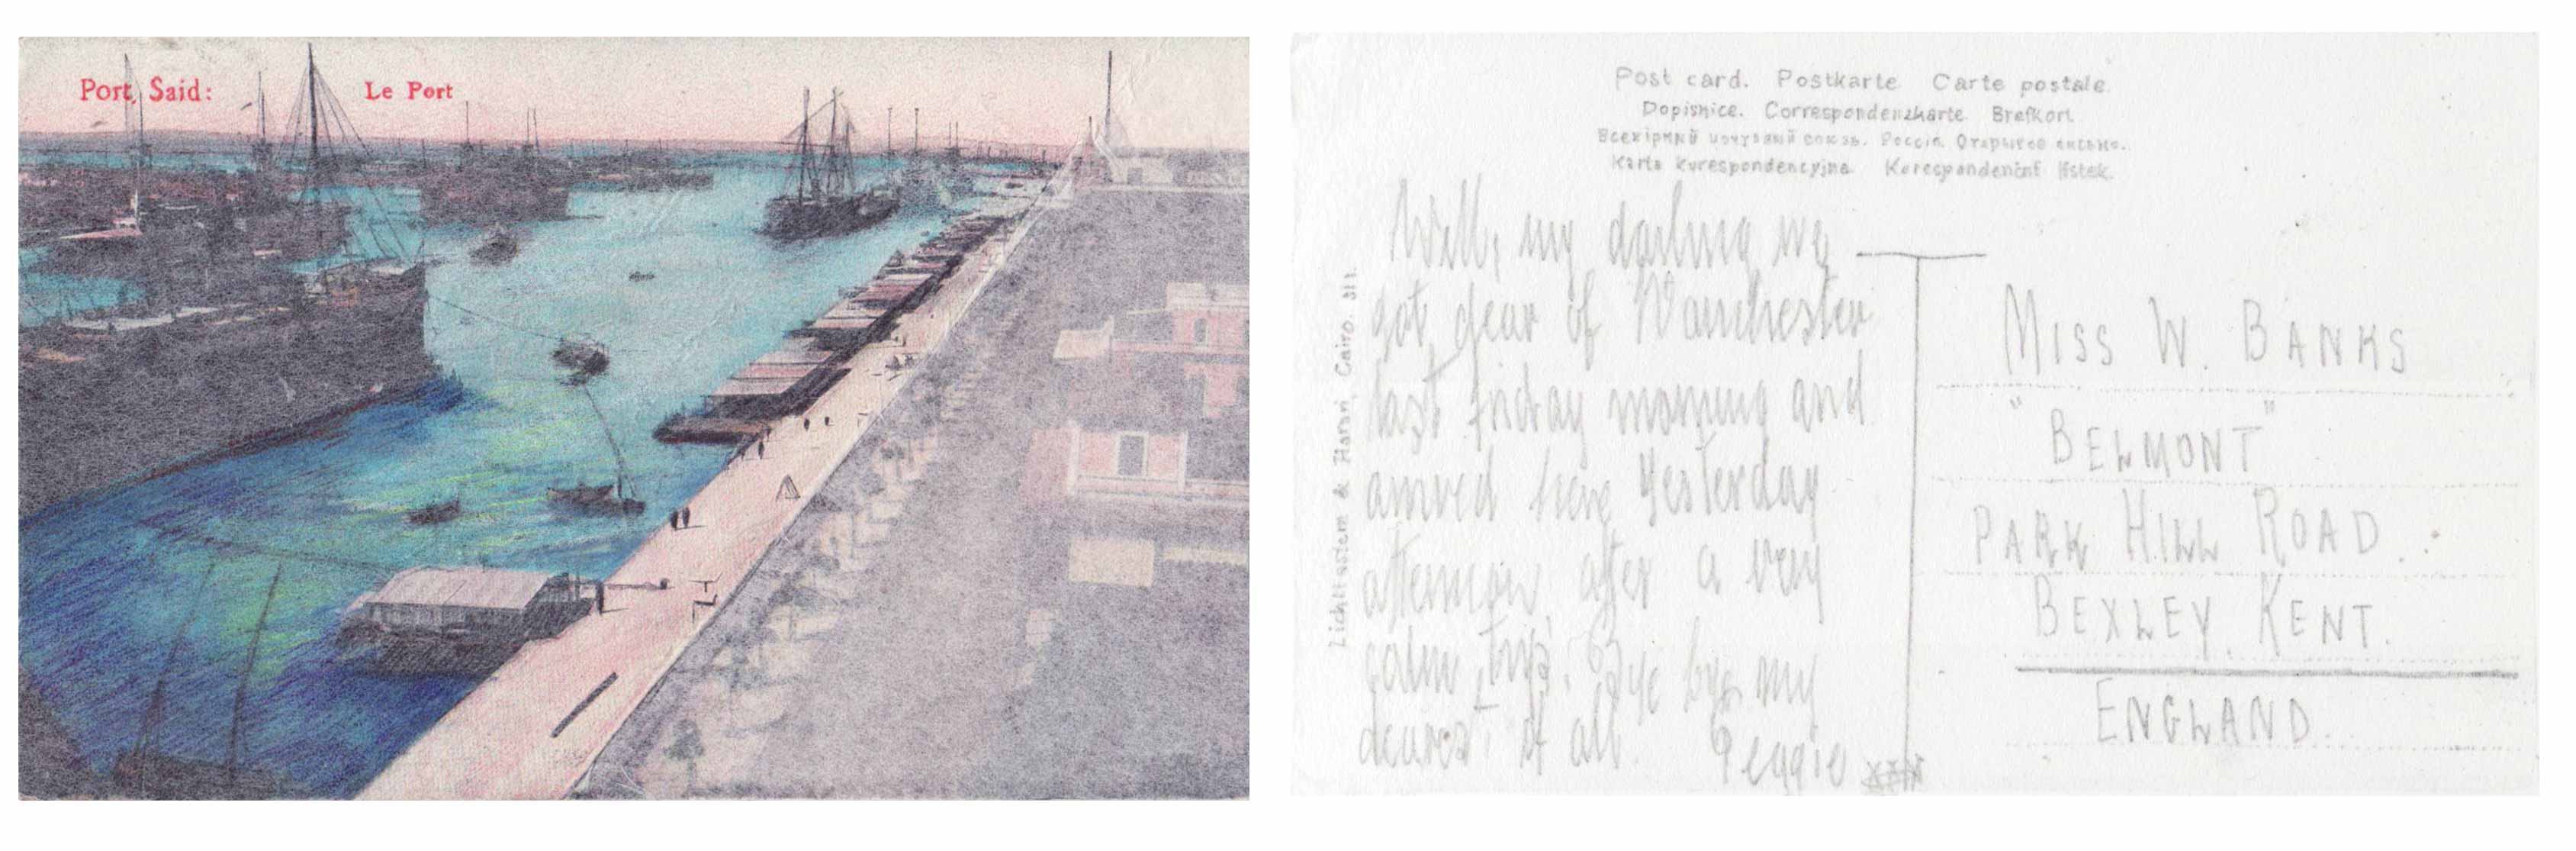 Port Said:
Le Port
Post card. Postkarte. Carte postale.
Dopisnice. Correspondenzkarte. Brefkort.
Karta korespondencyjna. Korespondenční lístek.
Lichtenstern & Harari, Cairo. 311.
Well, my darling we
got clear of Manchester
last friday morning and
arrived here Yesterday
afternoon after a very
calm trip. Bye bye my
dearest of all Reggie
MISS W. BANKS
"BELMONT"
PARK HILL ROAD.
BEXLEY. KENT.
ENGLAND.